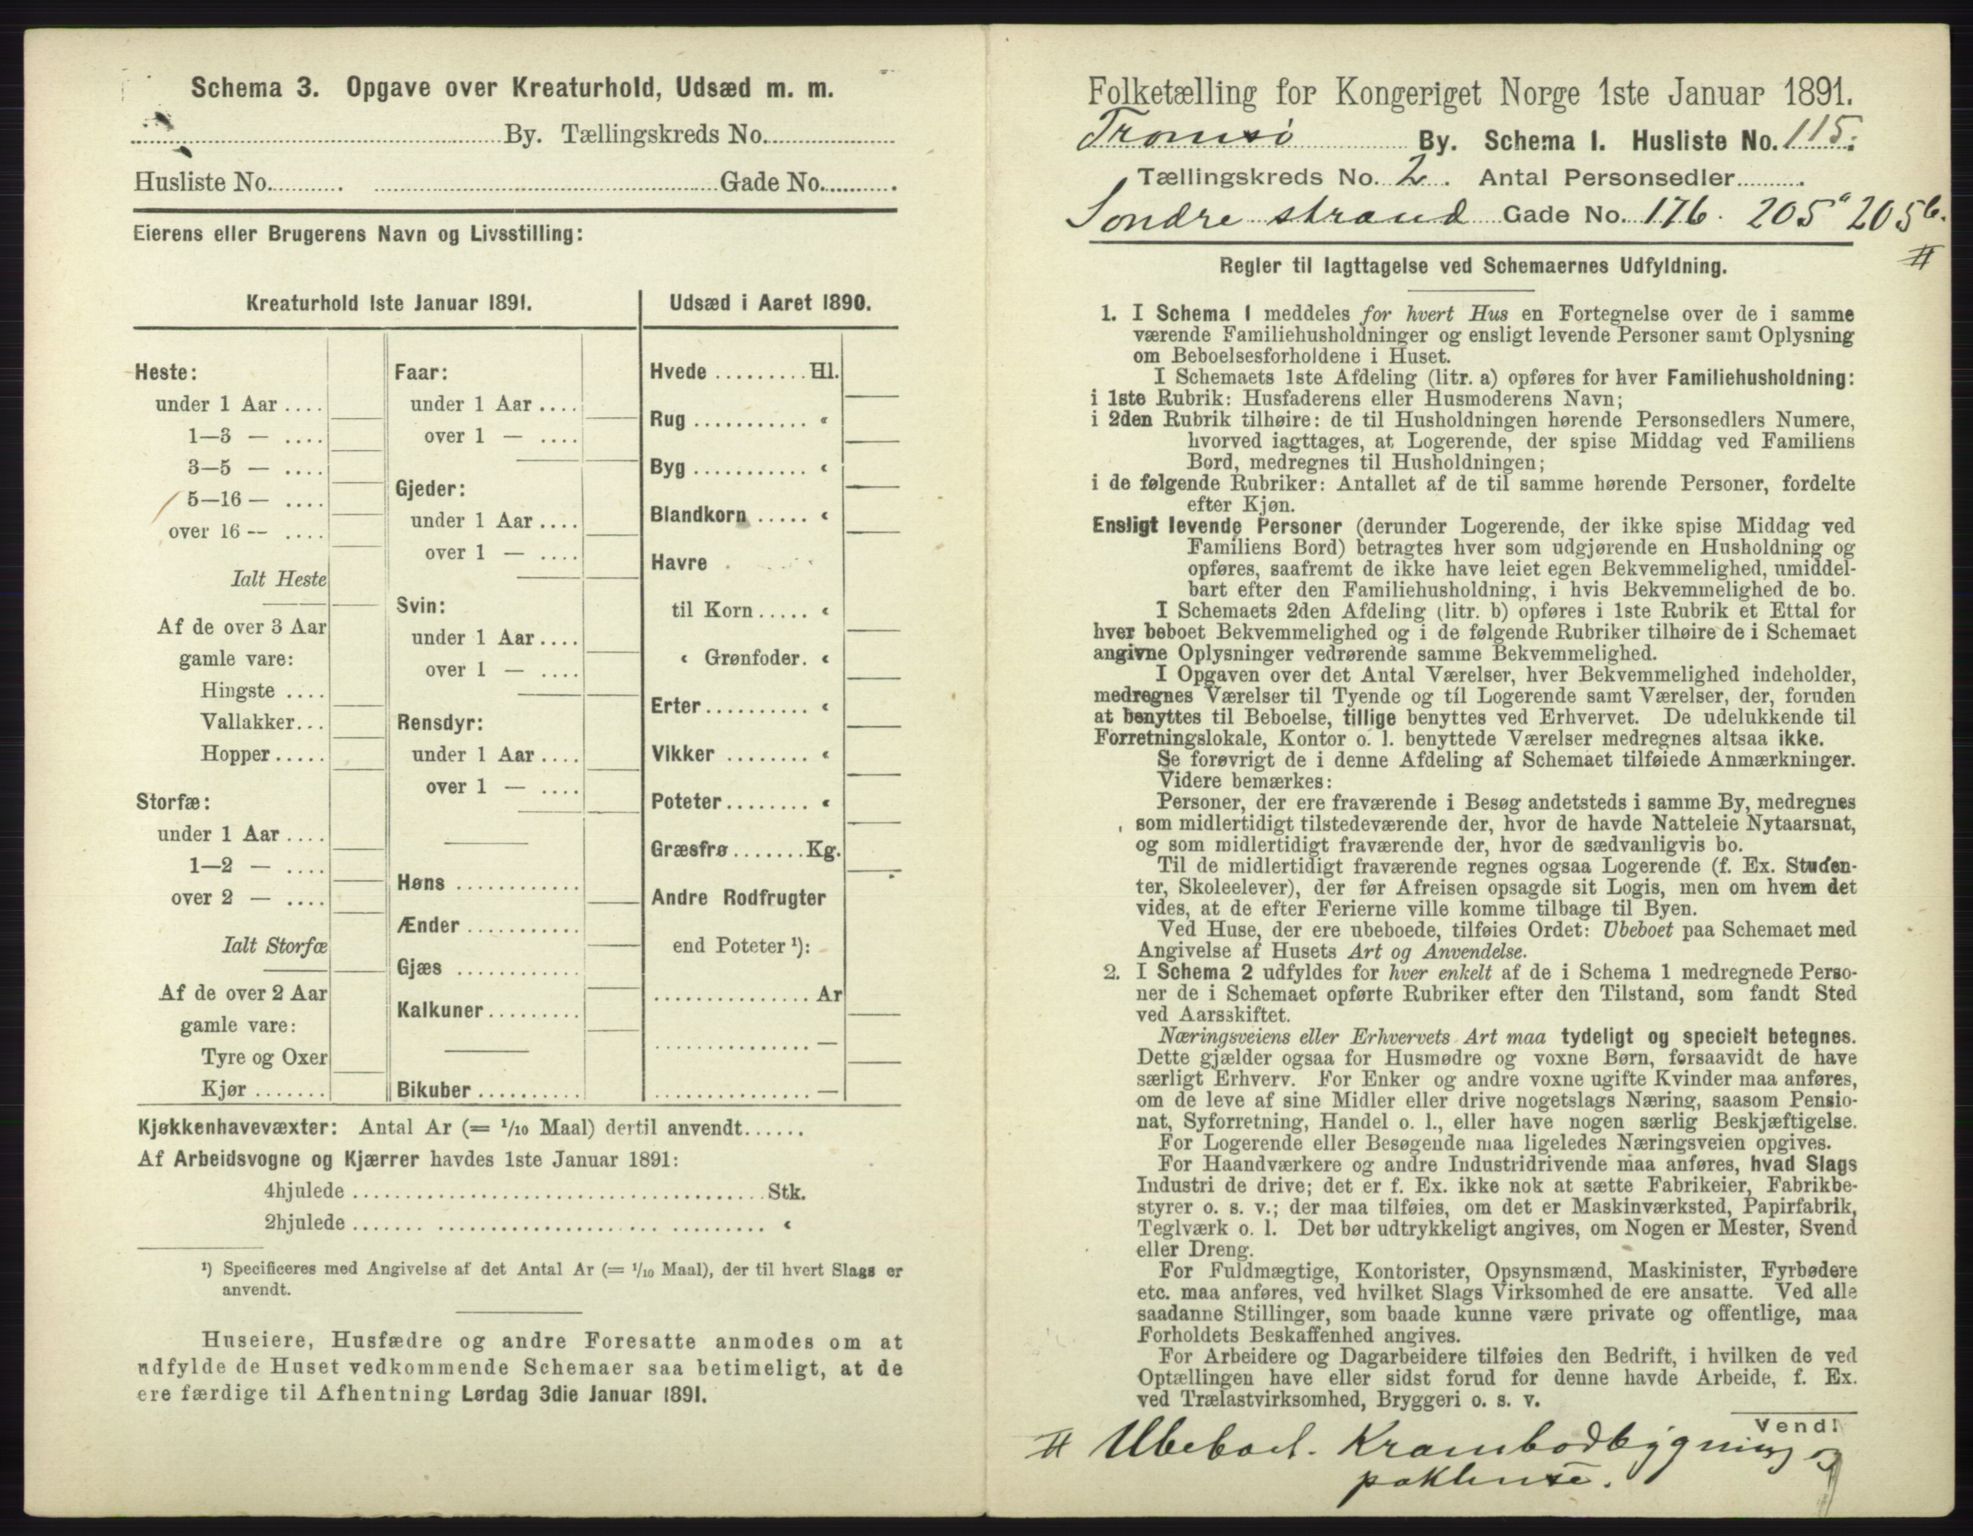 Schema 3. Opgave over Kreaturhold, Udsæd m. m.
By. Tællingskreds No.
Husliste No. Gade No.
Eierens eller Brugerens Navn og Livsstilling:
Kreaturhold 1ste Januar 1891.
Heste:
under 1 Aar ....
1—3 — ....
3—5 — ....
5—16 — ....
over 16 -- ....
Ialt Heste
Af de over 3 Aar
gamle vare:
Hingste ....
Vallakker...
Hopper.....
Storfæ:
under 1 Aar ....
1—2 — ....
over 2 — ....
Ialt Storfæ
Af de over 2 Aar
gamle vare:
Tyre og Oxer
Kjør .......
Faar:
under 1 Aar ....
over 1 — ....
Gjeder:
under 1 Aar ....
over 1 — ....
Svin:
under 1 Aar ....
over 1 — ....
Rensdyr:
under 1 Aar ....
over 1 — ....
Høns ...........
Ænder ...........
Gjæs ...........
Kalkuner.........
Bikuber..........
Udsæd i Aaret 1890.
Hvede .........Hl.
Rug ........... «
Byg ........... «
Blandkorn ..... «
Havre
til Korn ..... «
« Grønfoder. «
Erter.......... «
Vikker ........ «
Poteter........ «
Græsfrø .......Kg.
Andre Rodfrugter
end Poteter ¹):
............... Ar
............... —
............... —
Kjøkkenhavevæxter: Antal Ar (= 1/10 Maal) dertil anvendt......
Af Arbeidsvogne og Kjærrer havdes 1ste Januar 1891:
4hjulede ........ Stk.
2hjulede ........ «
¹) Specificeres med Angivelse af det Antal Ar (= 1/10 Maal), der til hvert Slags er
anvendt.
Huseiere, Husfædre og andre Foresatte anmodes om at
udfylde de Huset vedkommende Schemaer saa betimeligt, at de
ere færdige til Afhentning Lørdag 3die Januar 1891.
Folketælling for Kongeriget Norge 1ste Januar 1891.
Tromsø By. Schema 1. Husliste No. 115.
Tællingskreds No. 2. Antal Personsedler
Søndre strand Gade No. 176. 205a 205b.
#
Regler til Iagttagelse ved Schemaernes Udfyldning.
1. I Schema 1 meddeles for hvert Hus en Fortegnelse over de i samme
værende Familiehusholdninger og ensligt levende Personer samt Oplysning
om Beboelsesforholdene i Huset.
I Schemaets 1ste Afdeling (litr. a) opføres for hver Familiehusholdning:
i 1ste Rubrik: Husfaderens eller Husmoderens Navn;
i 2den Rubrik tilhøire: de til Husholdningen hørende Personsedlers Numere,
hvorved iagttages, at Logerende, der spise Middag ved Familiens
Bord, medregnes til Husholdningen;
i de følgende Rubriker: Antallet af de til samme hørende Personer, fordelte
efter Kjøn.
Ensligt levende Personer (derunder Logerende, der ikke spise Middag ved
Familiens Bord) betragtes hver som udgjørende en Husholdning og
opføres, saafremt de ikke have leiet egen Bekvemmelighed, umiddel-
bart efter den Familiehusholdning, i hvis Bekvemmelighed de bo.
I Schemaets 2den Afdeling (litr. b) opføres i 1ste Rubrik et Ettal for
hver beboet Bekvemmelighed og i de følgende Rubriker tilhøire de i Schemaet
angivne Oplysninger vedrørende samme Bekvemmelighed.
I Opgaven over det Antal Værelser, hver Bekvemmelighed indeholder,
medregnes Værelser til Tyende og til Logerende samt Værelser, der, foruden
at benyttes til Beboelse, tillige benyttes ved Erhvervet. De udelukkende til
Forretningslokale, Kontor o. l. benyttede Værelser medregnes altsaa ikke.
Se forøvrigt de i denne Afdeling af Schemaet tilføiede Anmærkninger.
Videre bemærkes:
Personer, der ere fraværende i Besøg andetsteds i samme By, medregnes
som midlertidigt tilstedeværende der, hvor de havde Natteleie Nytaarsnat,
og som midlertidigt fraværende der, hvor de sædvanligvis bo.
Til de midlertidigt fraværende regnes ogsaa Logerende (f. Ex. Studen-
ter, Skoleelever), der før Afreisen opsagde sit Logis, men om hvem det
vides, at de efter Ferierne ville komme tilbage til Byen.
Ved Huse, der ere ubeboede, tilføies Ordet: Ubeboet paa Schemaet med
Angivelse af Husets Art og Anvendelse.
2. I Schema 2 udfyldes for hver enkelt af de i Schema 1 medregnede Perso-
ner de i Schemaet opførte Rubriker efter den Tilstand, som fandt Sted
ved Aarsskiftet.
Næringsveiens eller Erhvervets Art maa tydeligt og specielt betegnes.
Dette gjælder ogsaa for Husmødre og voxne Børn, forsaavidt de have
særligt Erhverv. For Enker og andre voxne ugifte Kvinder maa anføres,
om de leve af sine Midler eller drive nogetslags Næring, saasom Pensio-
nat, Syforretning, Handel o. l., eller have nogen særlig Beskjæftigelse.
For Logerende eller Besøgende maa ligeledes Næringsveien opgives.
For Haandværkere og andre Industridrivende maa anføres, hvad Slags
Industri de drive; det er f. Ex. ikke nok at sætte Fabrikeier, Fabrikbe-
styrer o. s. v.; der maa tilføies, om det er Maskinværksted, Papirfabrik,
Teglværk o. l. Det bør udtrykkeligt angives, om Nogen er Mester, Svend
eller Dreng.
For Fuldmægtige, Kontorister, Opsynsmænd, Maskinister, Fyrbødere
etc. maa anføres, ved hvilket Slags Virksomhed de ere ansatte. Ved alle
saadanne Stillinger, som baade kunne være private og offentlige, maa
Forholdets Beskaffenhed angives.
For Arbeidere og Dagarbeidere tilføies den Bedrift, i hvilken de ved
Optællingen have eller sidst forud for denne havde Arbeide, f. Ex.
ved Trælastvirksomhed, Bryggeri o. s. v.
Vend!
# Ubeboet. Krambodbygning og
pakhuse.